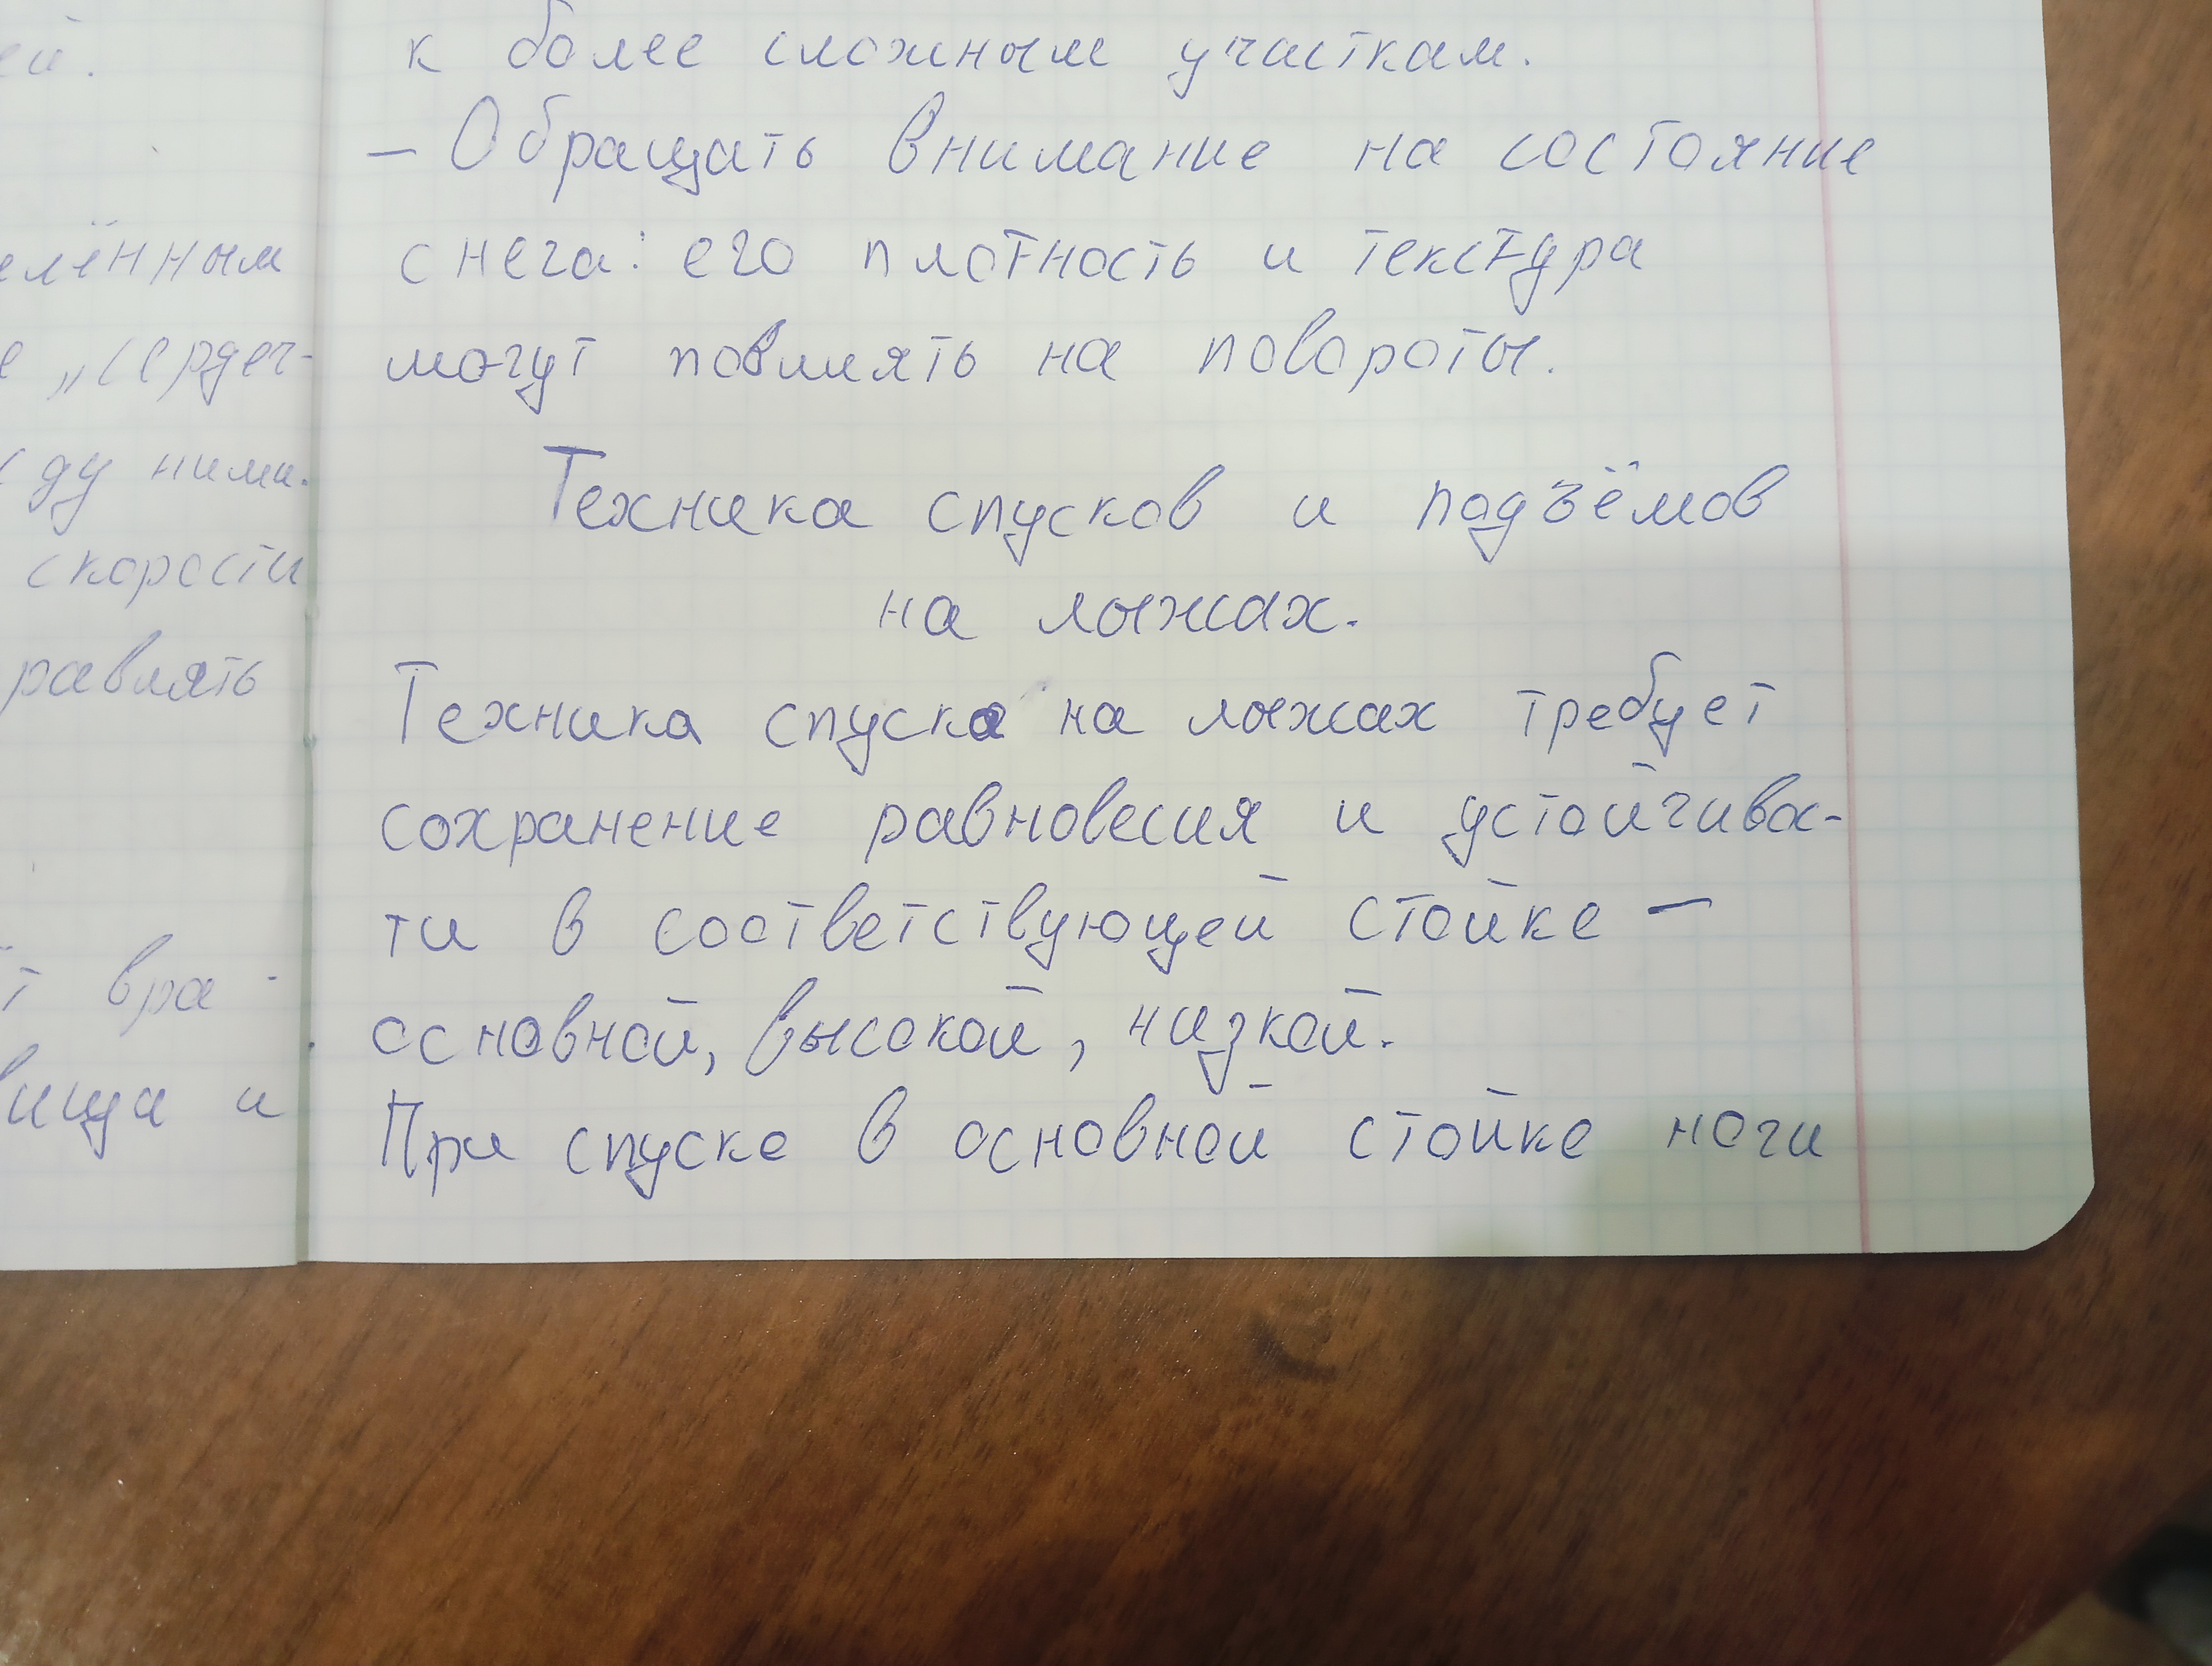 ей.
елённым
е "сердеч-
ду ними.
скорости
равлять
т вра-
вища и
к более сложным участкам.
— Обращать внимание на состояние
снега: его плотность и текстура
могут повлиять на повороты.
Техника спусков и подъёмов
на лыжах.
Техника спуска на лыжах требует
сохранение равновесия и устойчивос-
ти в соответствующей стойке —
основной, высокой, низкой.
При спуске в основной стойке ноги